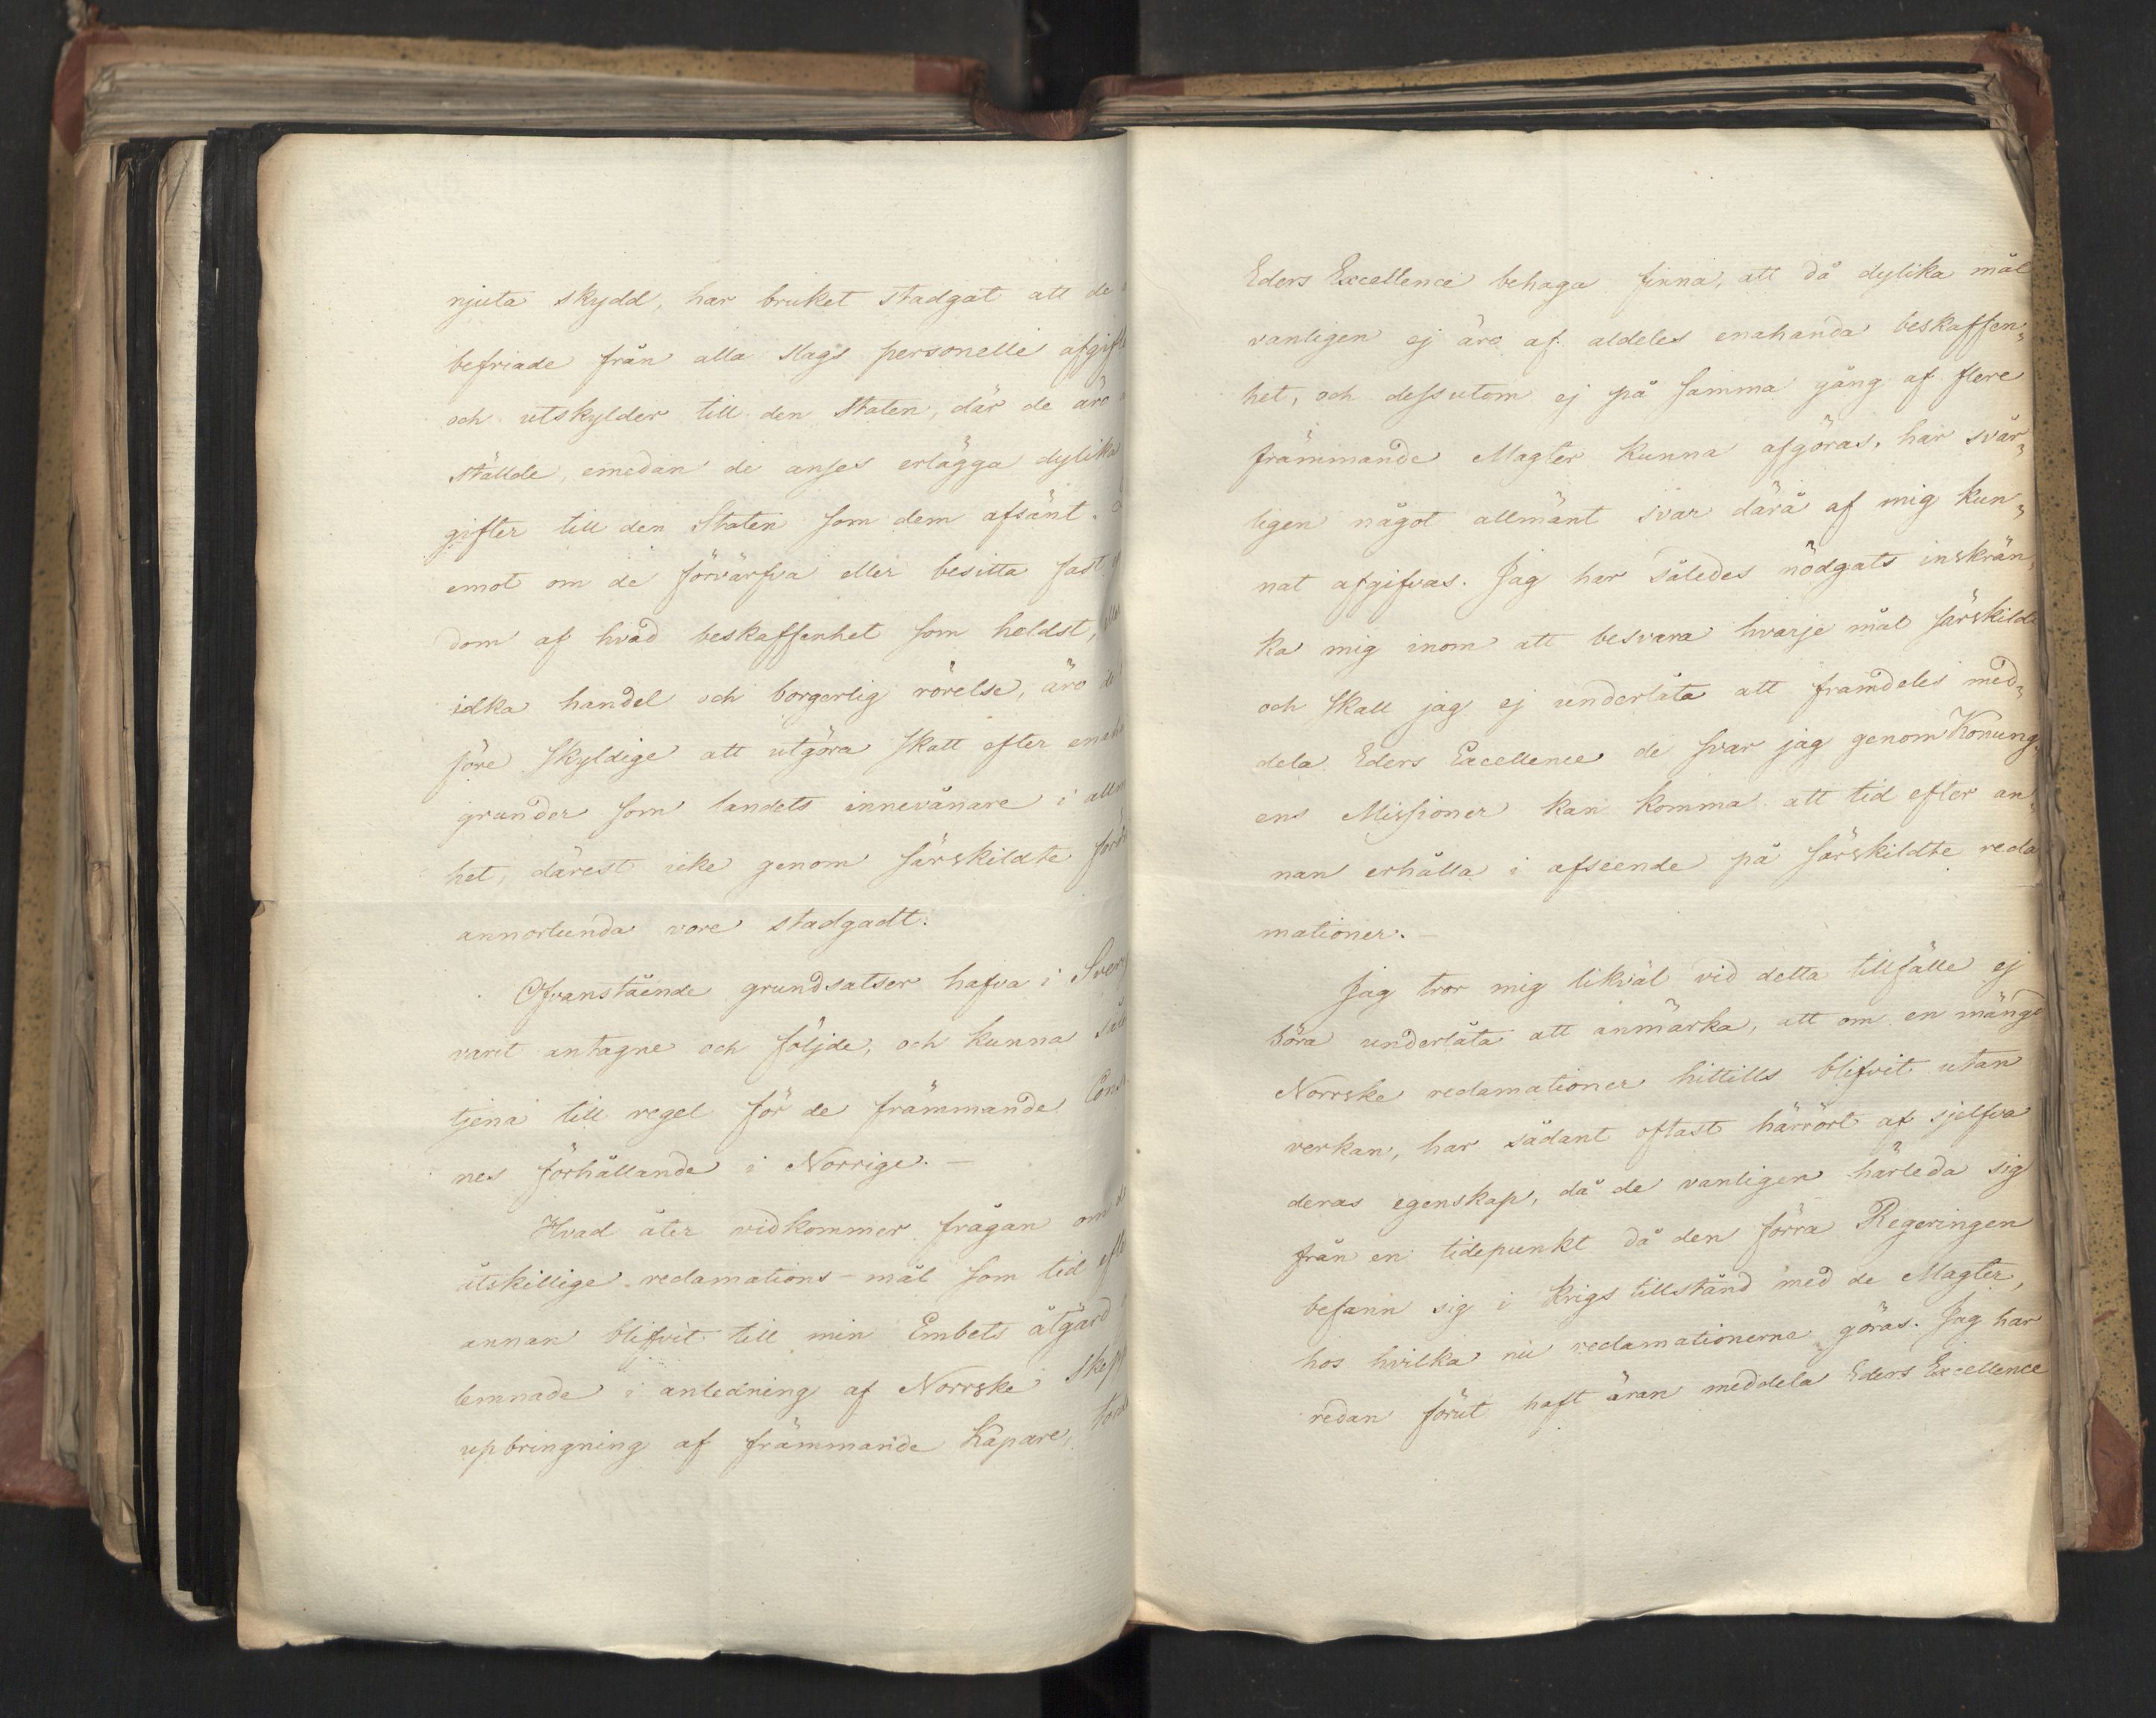 njuta skydd, har bruket stadgat att de
befriade från alla slags personelle afgift
och utskylder till den Staten, där de äro
ställde, emedan de anses erlägga dylika
gifter till den Staten som dem afsänt.
emot om de förvärfva eller besitta fast
dom af hvad beskaffenhet som heldst,
idka handel och borgerlig rörelse, äro de
före skyldige att utgöra skatt efter enah
grunder som landets innevånare i allm
het, därest icke genom särskildte förd
annorlunda vore stadgadt.
Ofvanstående grundsatser hafva i Sver
varit antagne och följde, och kunna sål
tjena till regel för de främmande Cons
nes förhållande i Norrige. —
Hvad åter vidkommer frågan om de
åtskillige reclamations-mål som tid eft
annan blifvit till min Embets åtgärd
lemnade i anledning af Norrske skep
upbringning af främmande Kapare,
Eders Excellence behaga finna, att då dylika mål
vanligen ej äro af aldeles enahanda beskaffen„
het, och dessutom ej på samma gång af flere
främmande Magter kunna afgöras, har svår„
ligen något allmänt svar därå af mig kun„
nat afgifvas. Jag har således nödgats inskrän„
ka mig inom att besvara hvarje mål särskildt
och skall jag ej underlåta att framdeles med„
dela Eders Excellence de svar jag genom Konung„
ens Missioner kan komma att tid efter an„
nan erhålla i afseende på särskildte recla
mationer. —
Jag tror mig likväl vid detta tillfälle ej
böra underlåta att anmärka, att om en mängd
Norrske reclamationer hittills blifvit utan
verkan, har sådant oftast härrört af sjelfva
deras egenskap, då de vanligen härleda sig
från en tidepunkt då den förra Regeringen
befann sig i Krigs tillstånd med de Magter,
hos hvilka nu reclamationerne göras. Jag har
redan förut haft äran meddela Eders Excellence